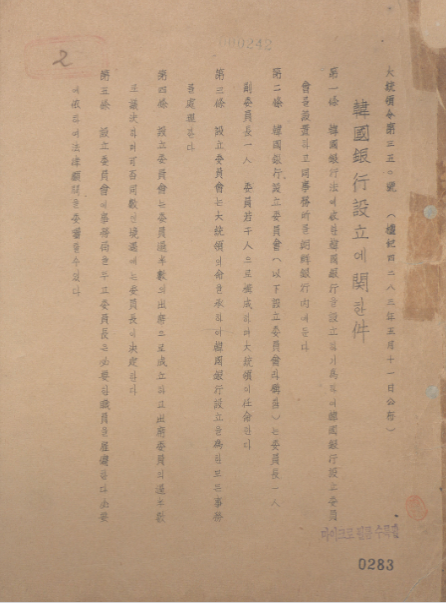 大統領令第三五〇號 (檀紀四二八三年五月十一日公布)
韓國銀行設立에關한件
第一條 韓國銀行法에依한韓國銀行을設立하기爲하여韓國銀行設立委員
會를設置하고同事務所를朝鮮銀行內에둔다
第二條 韓國銀行設立委員會(以下設立委員會라稱함)는委員長一人
副委員長一人 委員若干人으로構成하며大統領이任命한다
第三條 設立委員會는大統領의命을承하여韓國銀行設立을爲한모든事務
를處理한다
第四條 設立委員會는委員過半數의出席으로成立하고出席委員의過半數
로議決하며可否同數인境遇에는委員長이決定한다
第五條 設立委員會에事務局을두고委員長은必要한職員을 한다必要
에依하여法律顧問을委囑할수있다
2
000242
마이크로 필름 수록필
0283